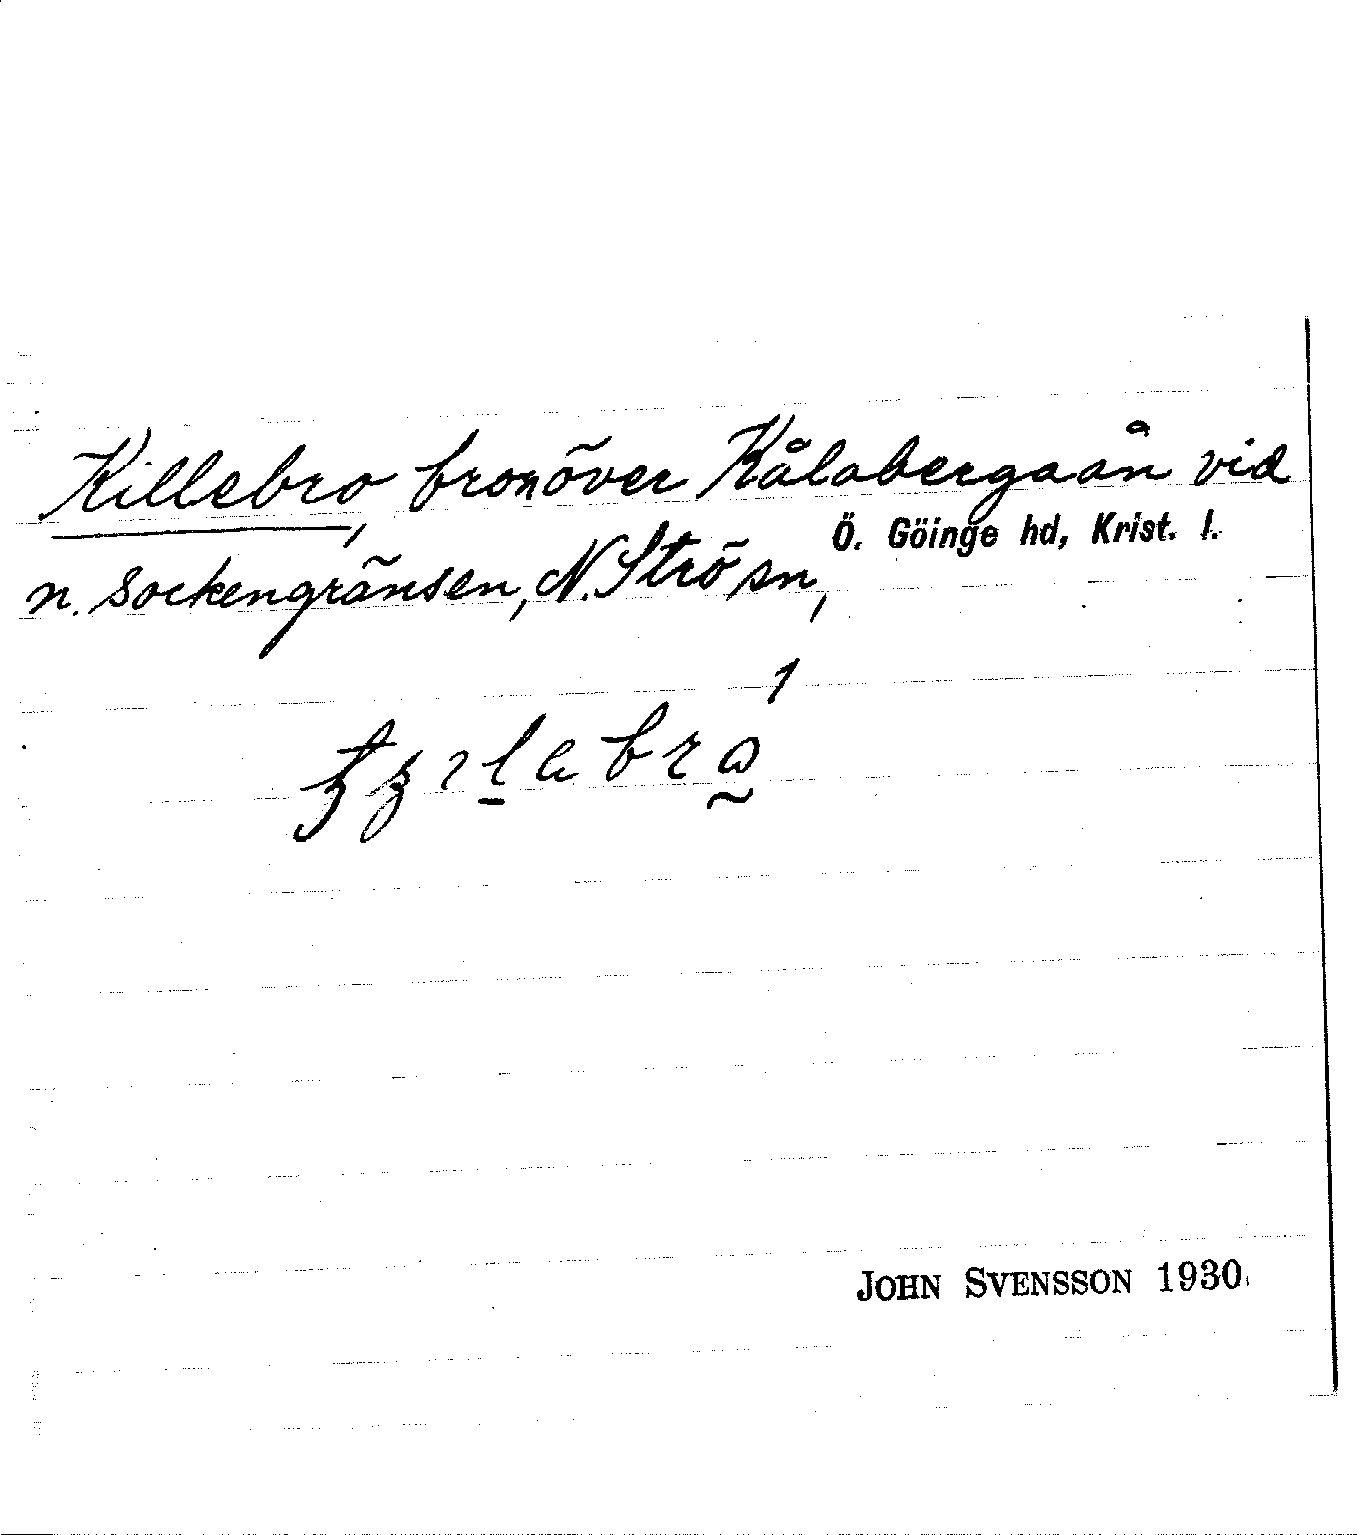 Killebro, bron över Kålabergaån vid
Ö. Göinge hd, Krist. l.
n. sockengränsen, N. Strö sn,
JOHN SVENSSON 1930.